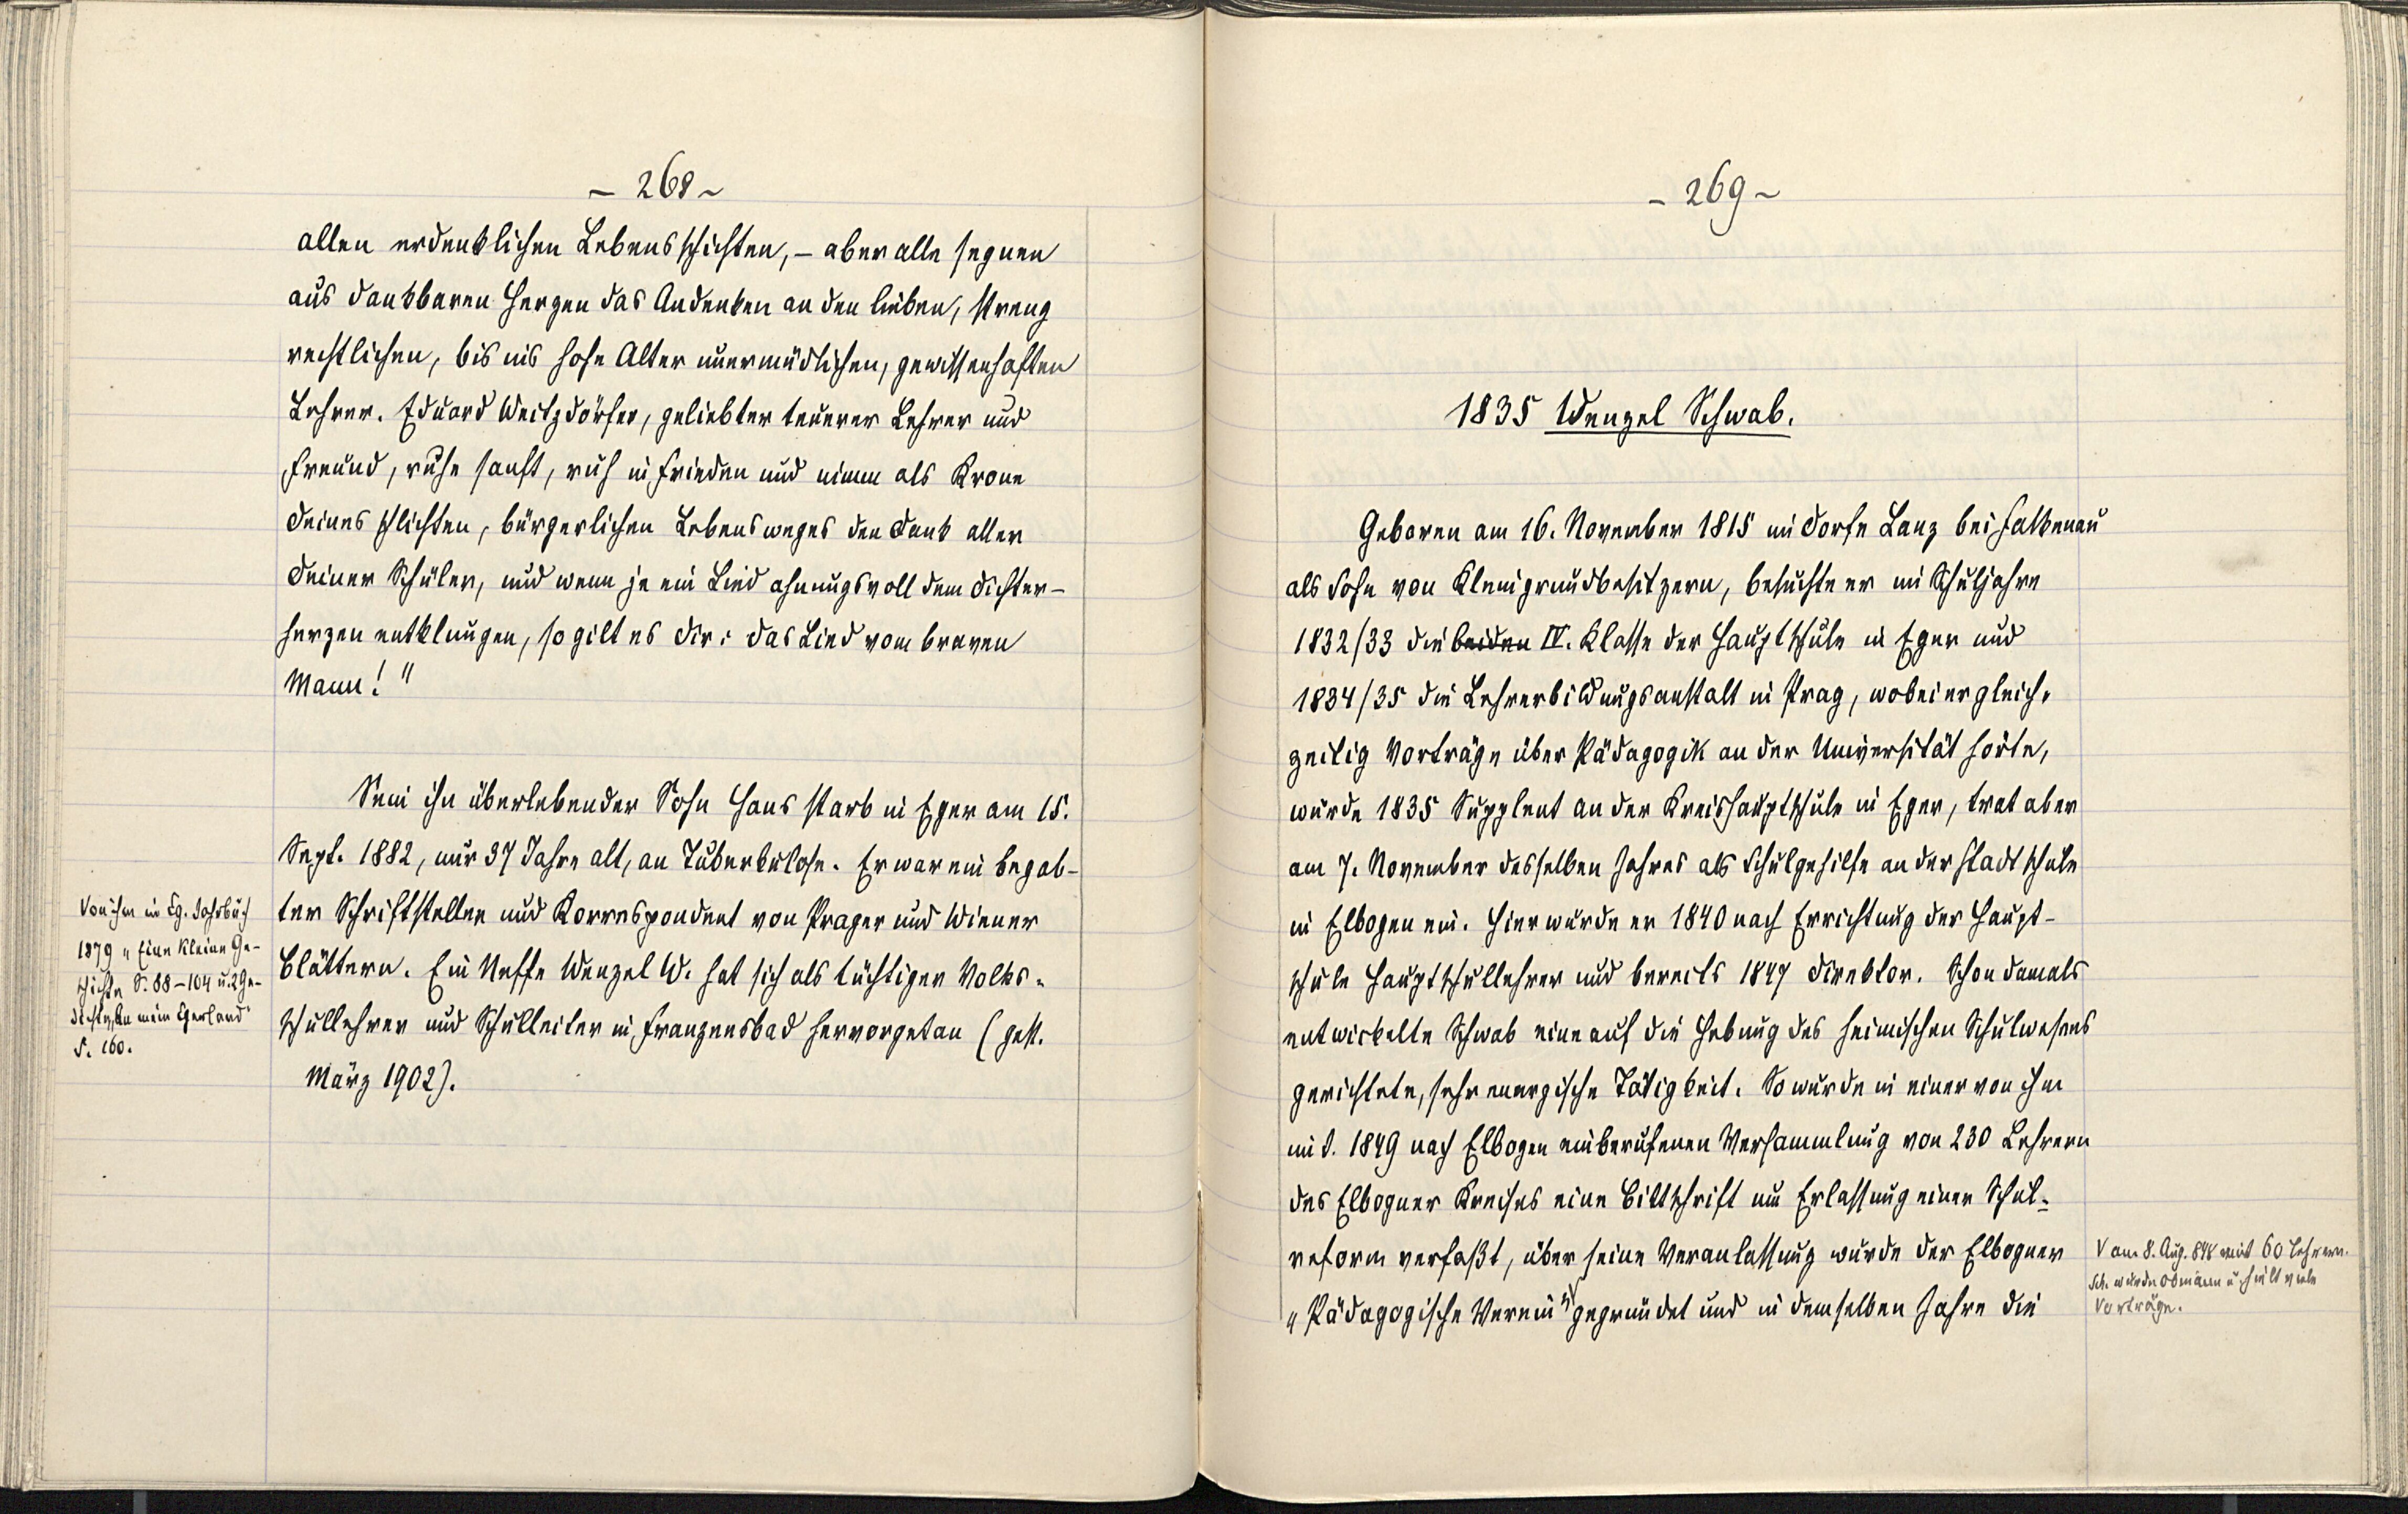 - 268 -
allen erdenklichen Lebensschichten, - aber alle segnen
aus dankbaren Herzen das Andenken an den lieben, streng
rechtlichen, bis ins hohe Alter unermüdlichen, gewissenhaften
Lehrer. Eduard Weitzdörfer, geliebter teuerer Lehrer und
Freund, ruhe sanft, ruh in Frieden und nimm als Krone
deines schlichten, bürgerlichen Lebensweges den Dank aller
deiner Schüler, und wenn je ein Lied ahnungsvoll dem Dichter-
herzen entklungen, so gilt es dir: das Lied vom braven
Mann!"
Sein ihn überlebender Sohn Hans starb in Eger am 15.
Sept. 1882, nur 37 Jahre alt, an Tuberkulose. Er war ein begab-
ter Schriftsteller und Korrespondent von Prager und Wiener
Blättern. Ein Neffe Wenzel W. hat sich als tüchtiger Volks-
schullehrer und Schulleiter in Franzensbad hervorgetan (gest.
März 1902).
Von ihm in Eg. Jahrbuch
1879 „Eine kleine Ge-
schichte S. 88-104 u. 2 Ge-
dichte, An mein Egerland"
S. 160.
- 269 -
1835 Wenzel Schwab.
Geboren am 16. November 1815 im Dorfe Lanz bei Falkenau
als Sohn von Kleingrundbesitzern, besuchte er im Schuljahre
1832/33 die beiden IV. Klasse der Hauptschule in Eger und
1834/35 die Lehrerbildungsanstalt in Prag, wobei er gleich-
zeitig Vorträge über Pädagogik an der Universität hörte,
wurde 1835 Supplent an der Kreishauptschule in Eger, trat aber
am 7. November desselben Jahres als Schulgehilfe an der Stadtschule
in Elbogen ein. Hier wurde er 1840 nach Errichtung der Haupt-
schule Hauptschullehrer und bereits 1847 Direktor. Schon damals
entwickelte Schwab eine auf die Hebung des heimischen Schulwesens
gerichtete, sehr energische Tätigkeit. So wurde in einer von ihm
im J. 1849 nach Elbogen einberufenen Versammlung von 230 Lehrern
des Elbogner Kreises eine Bittschrift um Erlassung einer Schul-
reform verfaßt, über seine Veranlassung wurde der Elbogner
„Pädagogische Verein" V gegründet und in demselben Jahre die
V am 8. Aug. 848 mit 60 Lehrern.
Sch. wurde Obmann u. hielt viele
Vorträge.